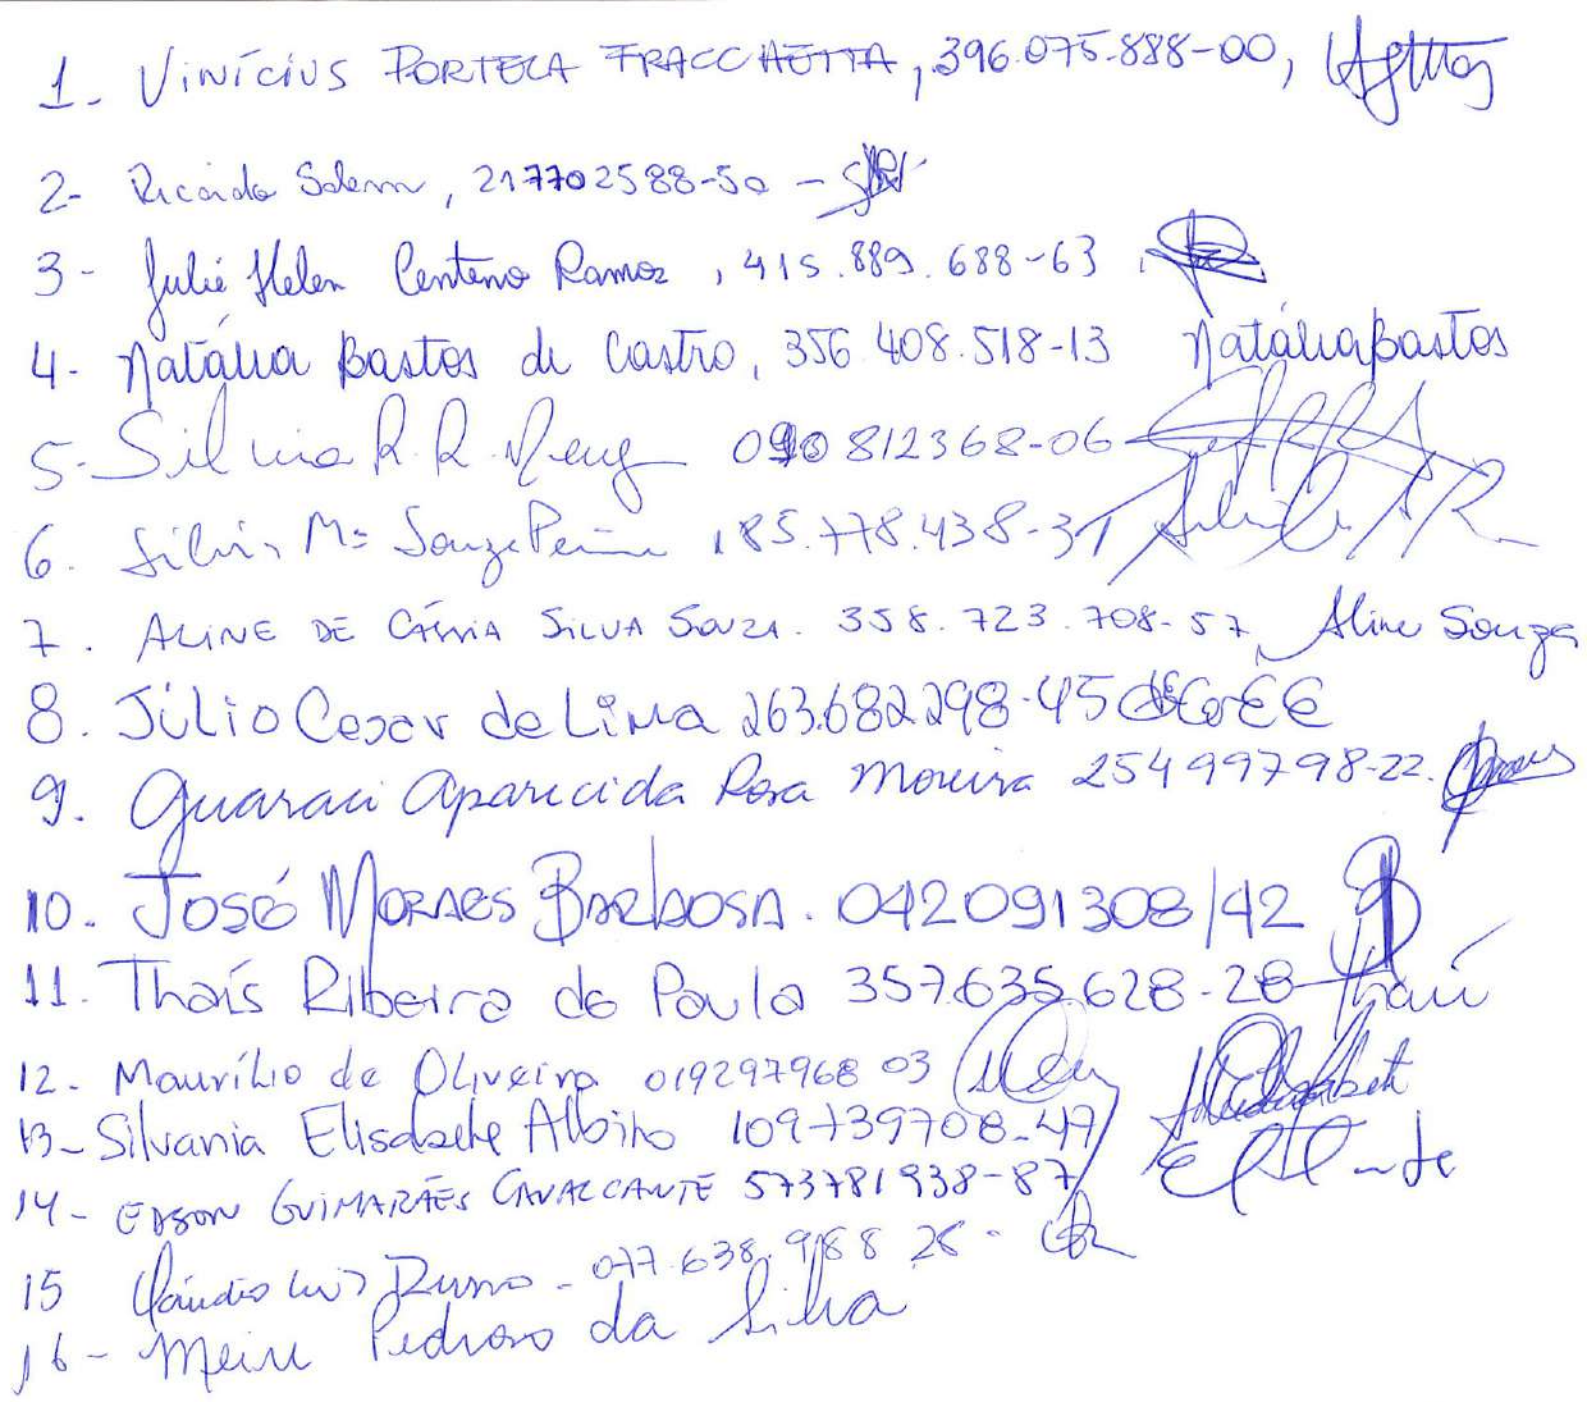 1- VINÍCIUS PORTELA FRACCHETTA, 396.075.888-00,
2- Ricardo Salem, 217702588-50 -
3- Julie Helen Centeno Ramos, 415.889.688-63
4- Natália Bastos de Castro, 356.408.518-13 Natália Bastos
5- Silvia R.R. 812368-06
6. Silvia Mª Souza 185.778.438-31
7. ALINE DE CÁSSIA SILVA SOUZA. 358.723.708-57, Aline Souza
8. JÚLIO Cesar de Lima 263.682.298-45
9. Guaraci Aparecida Rosa Moreira 25499798-22.
10. José Moraes Barbosa. 042091308/42
11. Thaís Ribeiro de Paula 357.635.628-28 Thaís
12- Maurílio de Oliveira 019297968 03
13- Silvania Elisabete Albino 109739708-47
14- EDSON GUIMARÃES CAVALCANTE 573781938-87
15 Cláudio Luiz Russo - 077.638.988 28 -
16- Meire Pedroso da Silva